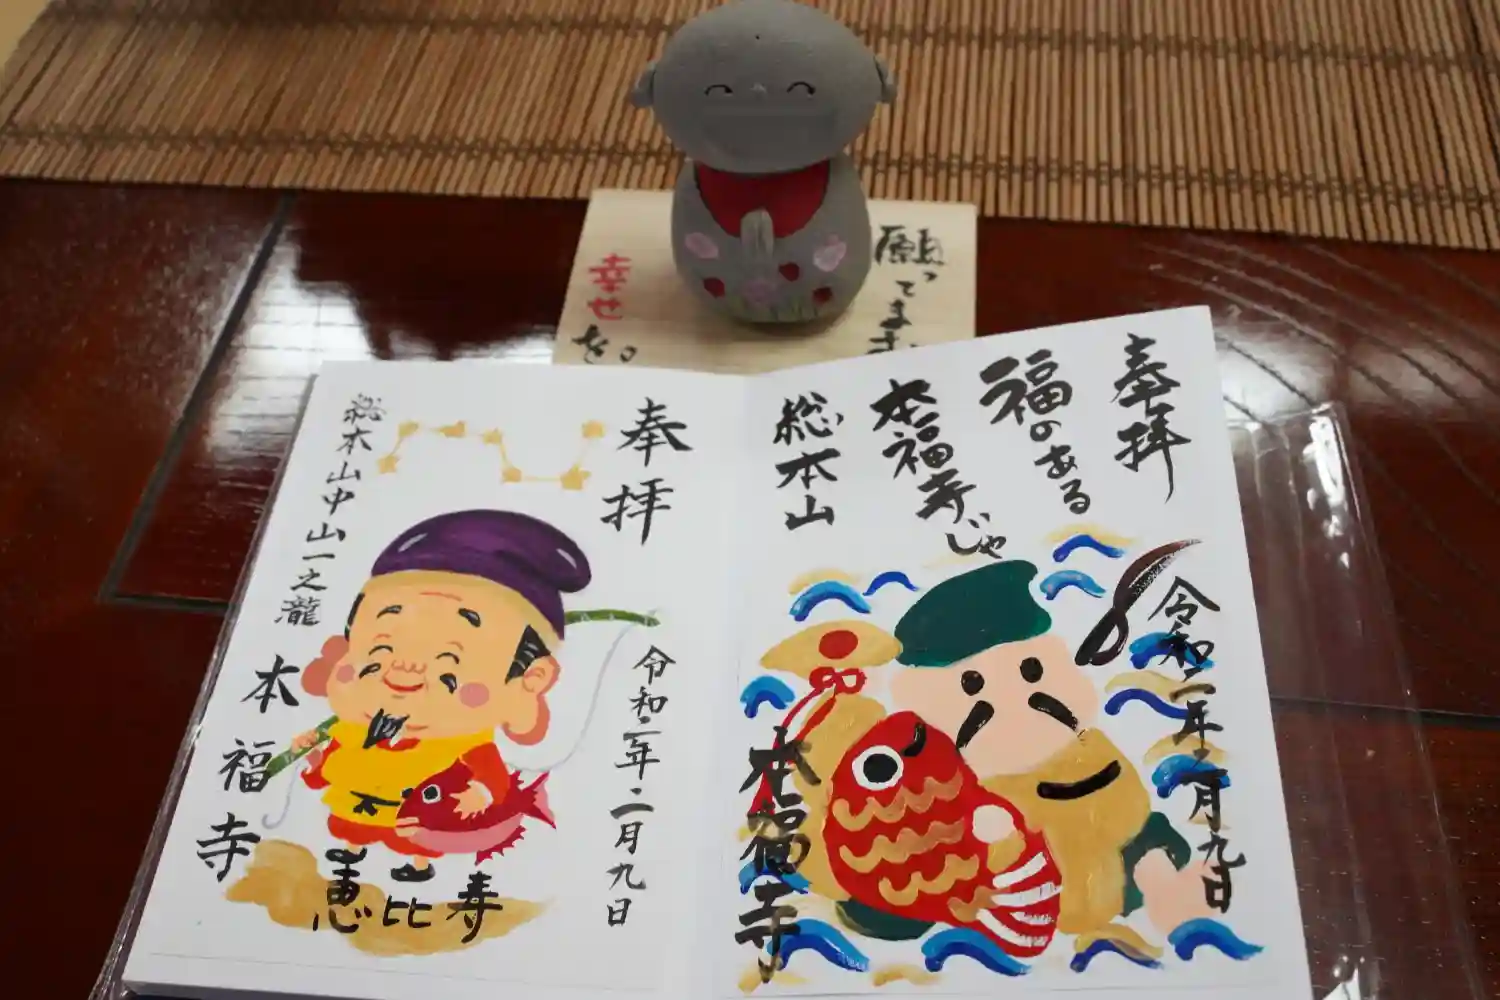 願ってます
幸せ
を。
奉拝
福のある
本福寺じゃ
総本山
令和二年二月九日
本福寺
奉拝
総本山中山一之瀧
本福寺
恵比寿
令和二年二月九日